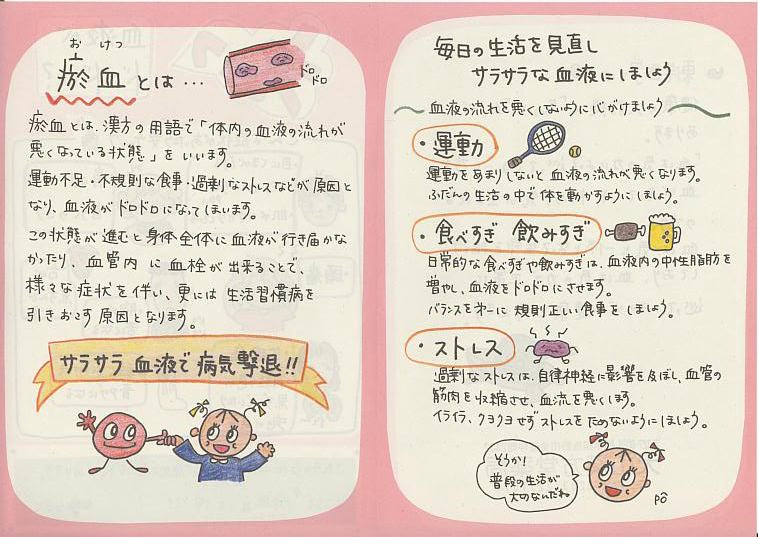 おけつ
瘀血とは…
ドロドロ
瘀血とは、漢方の用語で「体内の血液の流れが
悪くなっている状態」をいいます。
運動不足・不規則な食事・過剰なストレスなどが原因と
なり、血液がドロドロになってしまいます。
この状態が進むと身体全体に血液が行き届かな
かたり、血管内に血栓が出来ることで、
様々な症状を伴い、更には生活習慣病を
引きおこす原因となります。
サラサラ血液で病気撃退!!
毎日の生活を見直し
サラサラな血液にしましょう
血液の流れを悪くしないように心がけましょう
・運動
運動をあまりしないと血液の流れが悪くなります。
ふだんの生活の中で体を動かすようにしましょう。
・食べすぎ 飲みすぎ
日常的な食べすぎや飲みすぎは、血液内の中性脂肪を
増やし、血液をドロドロにさせます。
バランスを第一に規則正しい食事をしましょう。
・ストレス
過剰なストレスは、自律神経に影響を及ぼし、血管の
筋肉を収縮させ、血流を悪くします。
イライラ、クヨクヨせずストレスをためないようにしましょう。
そうか!
普段の生活が
大切なんだね
Pô